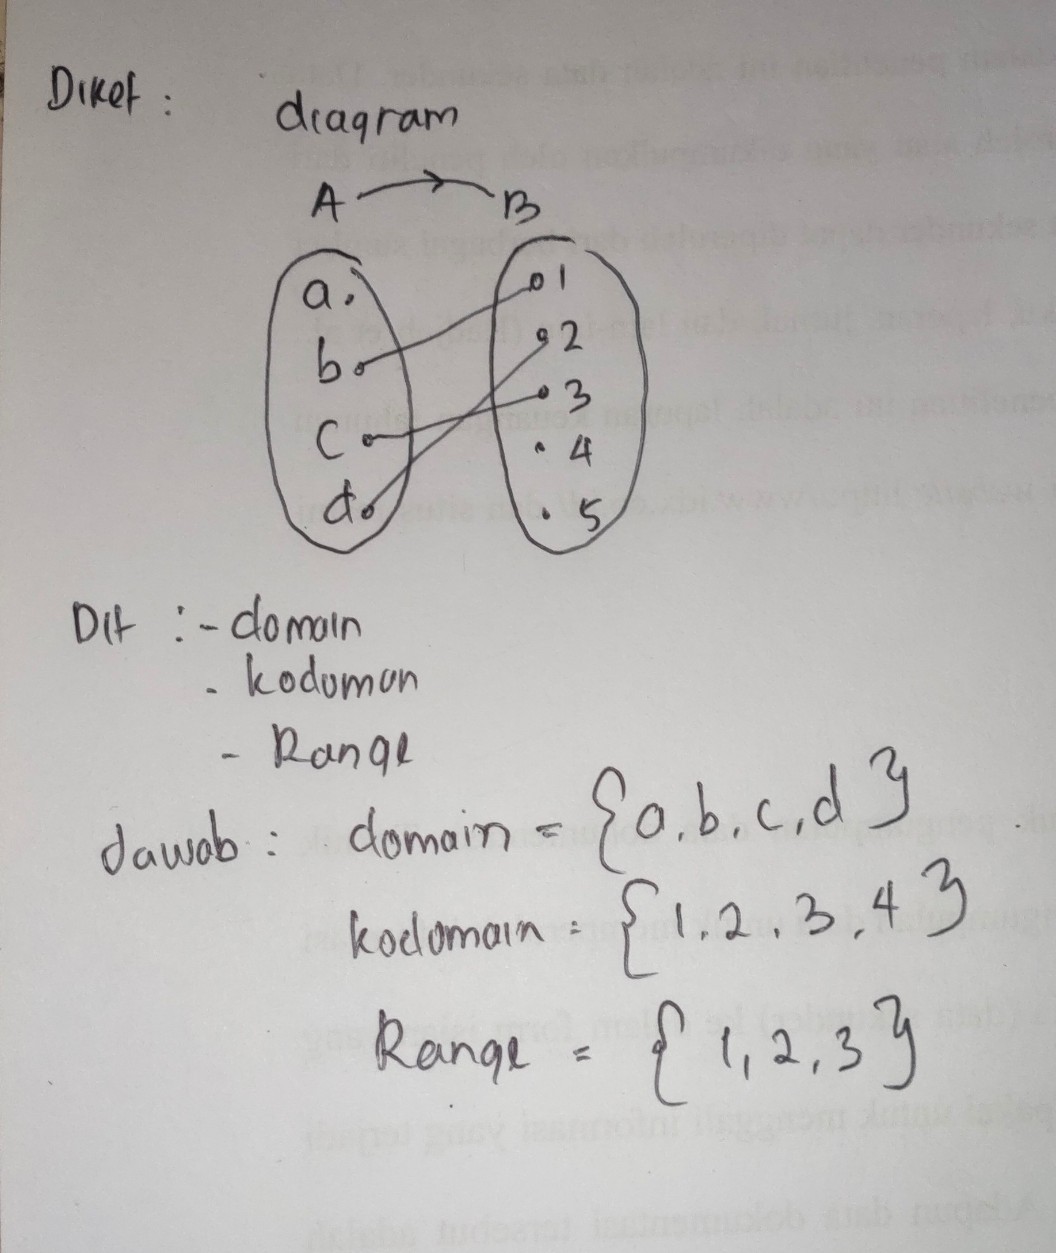 Diket :
diagram
A → B
a. 1
b 2
c 3
d 4
5
Dit : - domain
- kodoman
- Range
Jawab : domain = {a, b, c, d}
kodomain = {1, 2, 3, 4}
Range = {1, 2, 3}